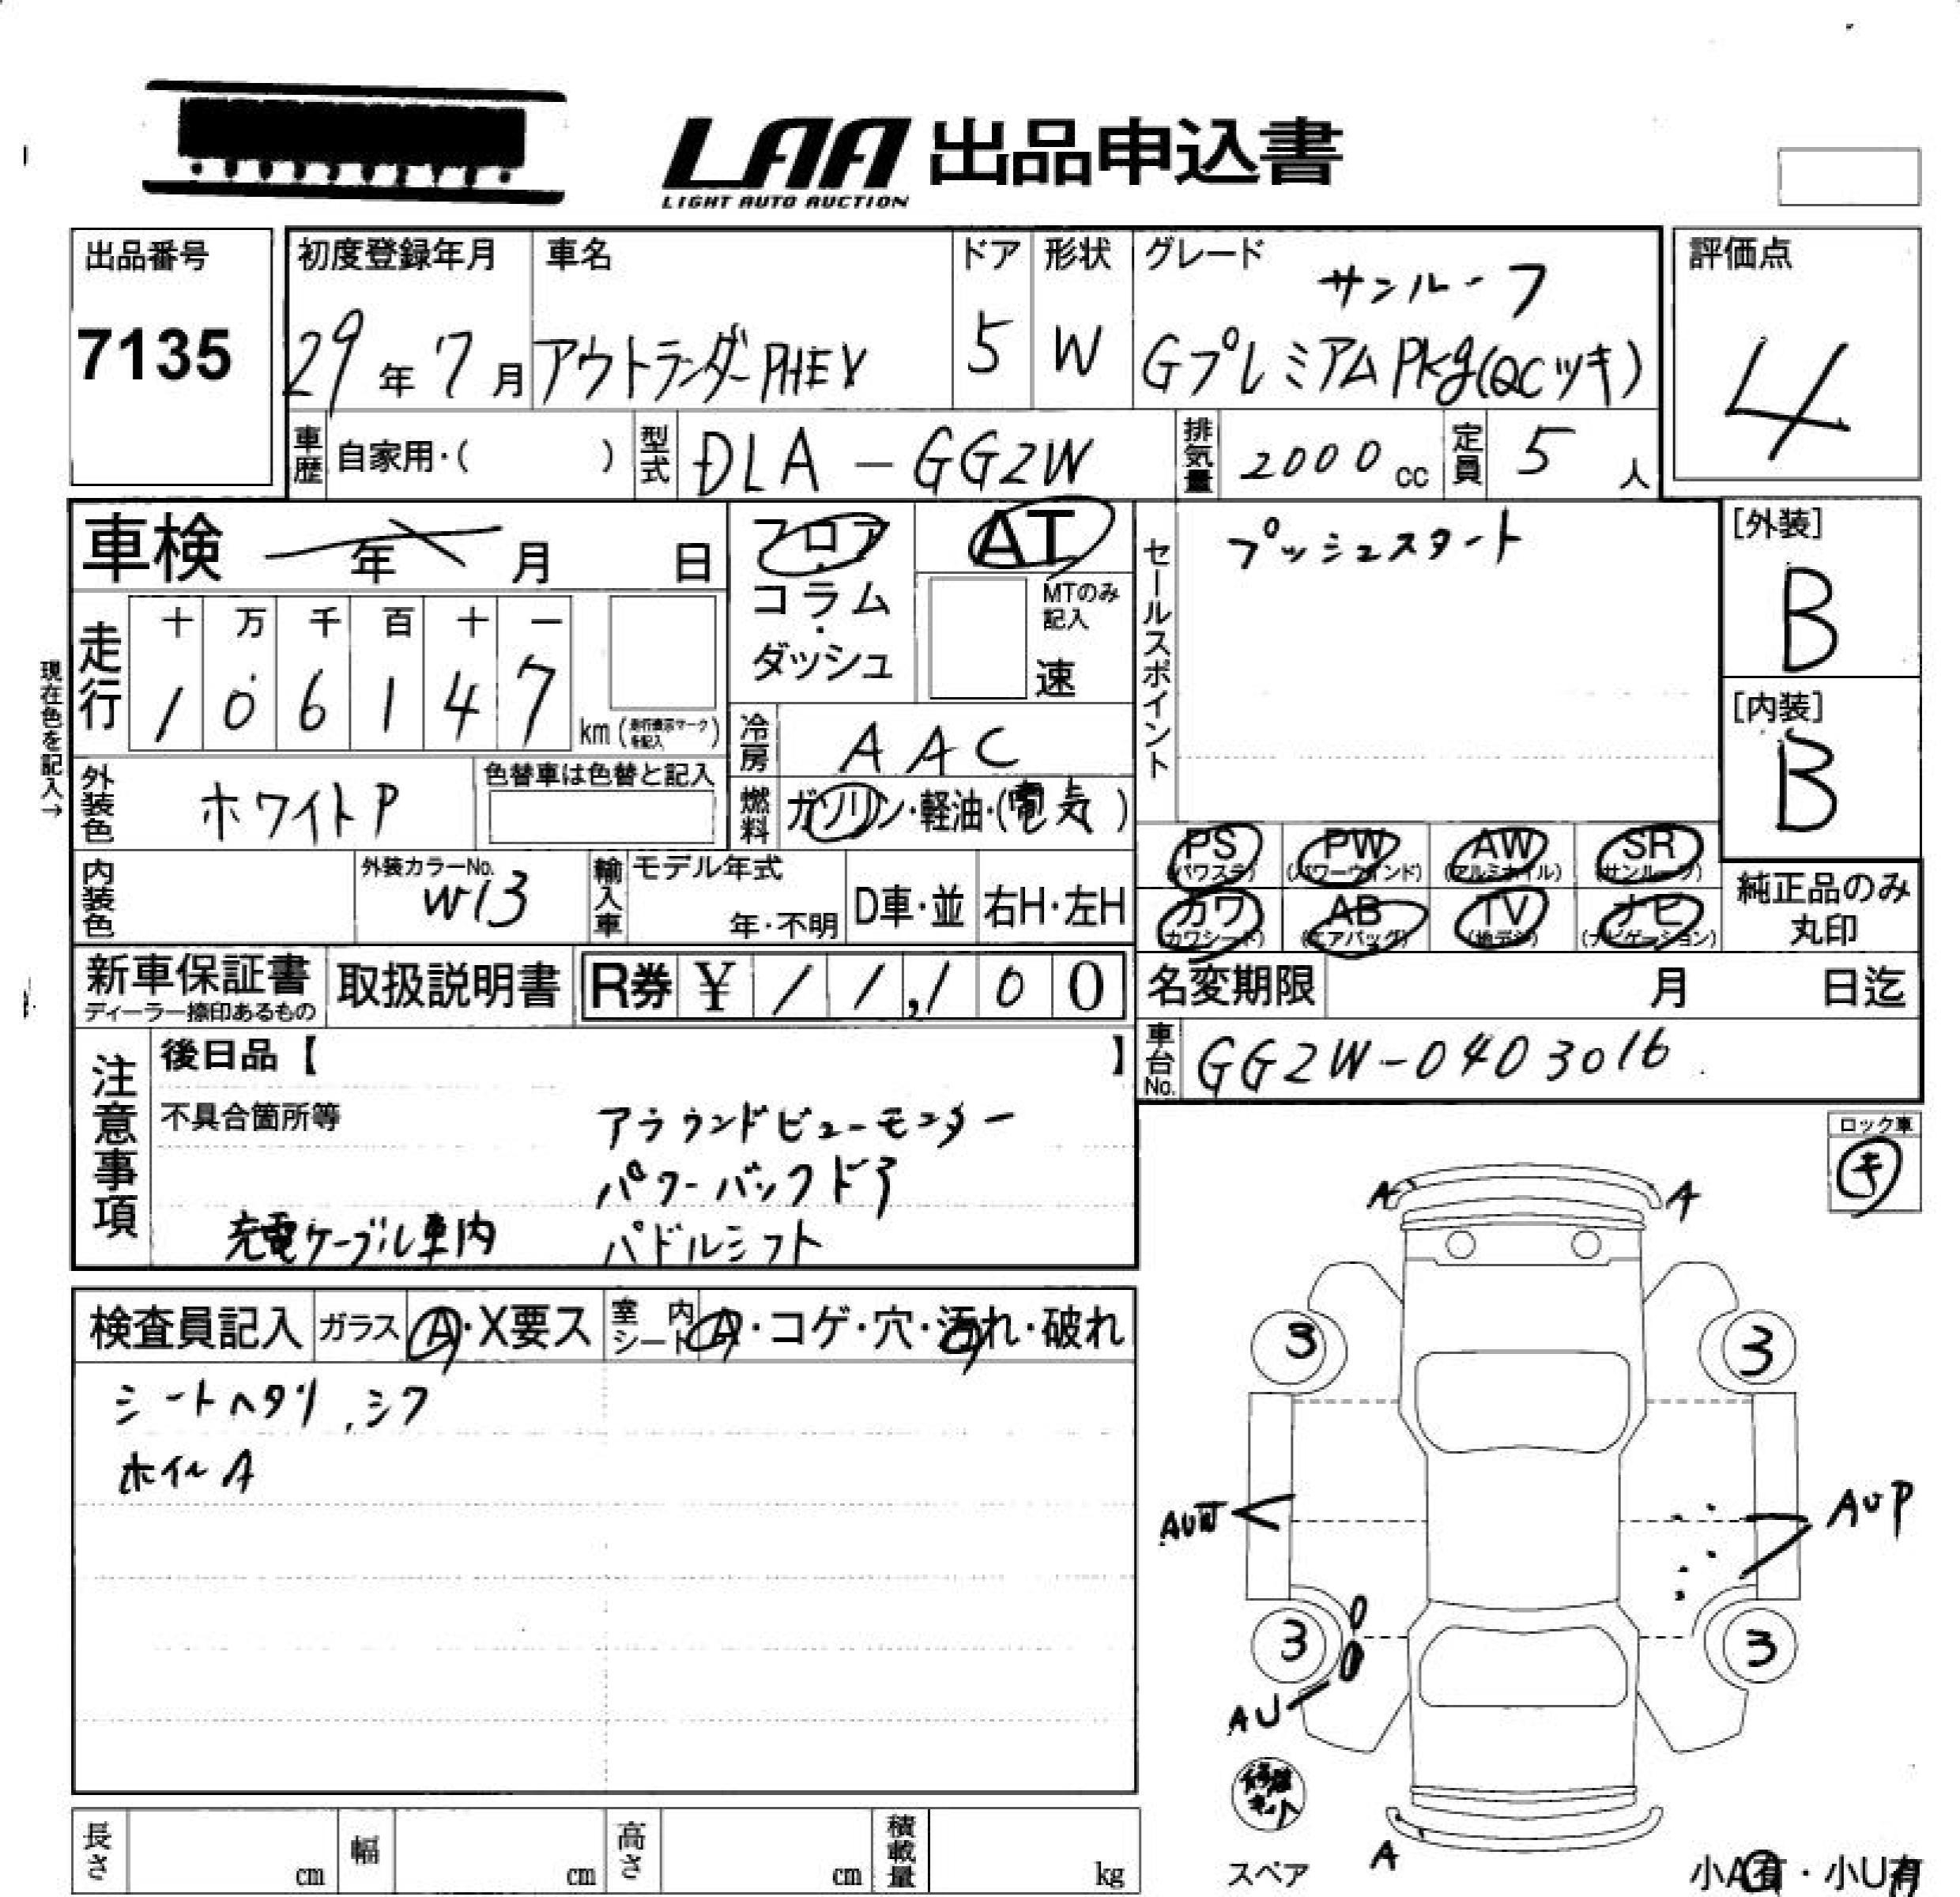 LAA 出品申込書
LIGHT AUTO AUCTION
出品番号
7135
初度登録年月
29年7月
車名
アウトランダーPHEV
ドア
5
形状
W
グレード
サンルーフ
Gプレミアム Pkg(QCツキ)
評価点
4
車歴 自家用・( )
型式 DLA-GG2W
排気量 2000cc
定員 5人
車検 年 月 日
フロア・コラム・ダッシュ
AT
MTのみ記入
速
セールスポイント
プッシュスタート
[外装]
B
[内装]
B
現在色を記入→
走行
十 万 千 百 十 一
1 0 6 1 4 7
km (走行表示マークを記入)
冷房 AAC
燃料 ガソリン・軽油・(電気)
外装色 ホワイトP
色替車は色替と記入
内装色
外装カラーNo.
W13
輸入車 モデル年式
年・不明
D車・並
右H・左H
PS (パワステ)
PW (パワーウインド)
AW (アルミホイル)
SR (サンルーフ)
カワ (カワシート)
AB (エアバッグ)
TV (地デジ)
ナビ (ナビゲーション)
純正品のみ丸印
新車保証書
ディーラー捺印あるもの
取扱説明書
R券 ¥11,100
名変期限 月 日迄
車台No. GG2W-0403016
注意事項
後日品【 】
不具合箇所等
アラウンドビューモニター
パワーバックドア
充電ケーブル車内 パドルシフト
ロック車
キ
検査員記入
ガラス A・X要ス
室内シート A・コゲ・穴・汚れ・破れ
シートヘタリ、シワ
ホイルA
A A
3 3
AUP
3 3
AU
A
スペア
小A有・小U有
長さ cm
幅 cm
高さ cm
積載量 kg